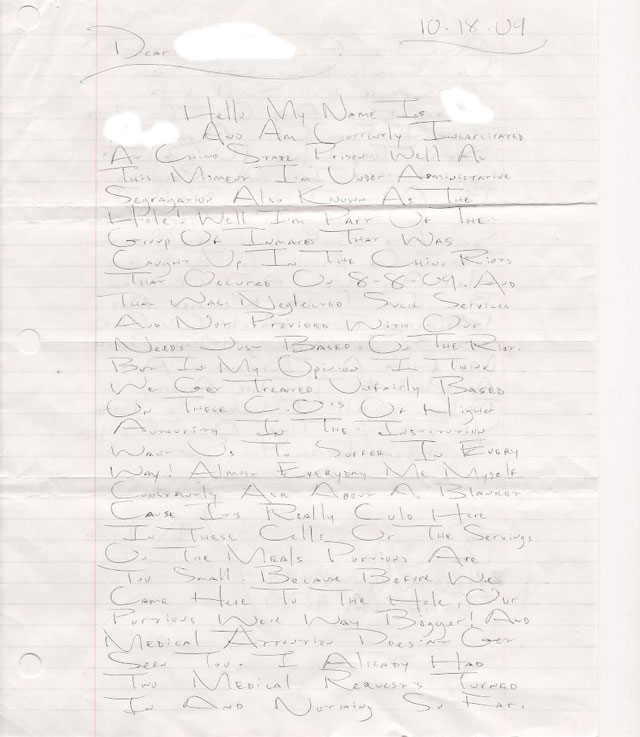 10-18-09
Dear
Hello My Name Is
And Am Currently Incarcirated
At Chino State Prison. Well At
This Moment I'm Under Administrative
Segragation Also Known As The
"Hole". Well I'm Part Of The
Group Of Inmates That Was
Caught Up In The Chino Riots
That Occured On 8-8-09. And
That Was Neglected Such Services
And Not Provided With Our
Needs Just Based On The Riot.
But In My Opinion I Think
We Get Treated Unfairly Based
On These C.O's Of Higher
Authority In The Institution
Want Us To Suffer In Every
Way! Almost Everyday Me Myself
Constantly Ask About A Blanket
Cause Its Really Cold Here
In These Cells. Or The Servings
On The Meals Portions Are
Too Small. Because Before We
Came Here To The Hole, Our
Portions Were Way Bigger! And
Medical Attention Doesn't Get
Seen Too. I Already Had
Two Medical Request's Turned
In And Nothing So Far.